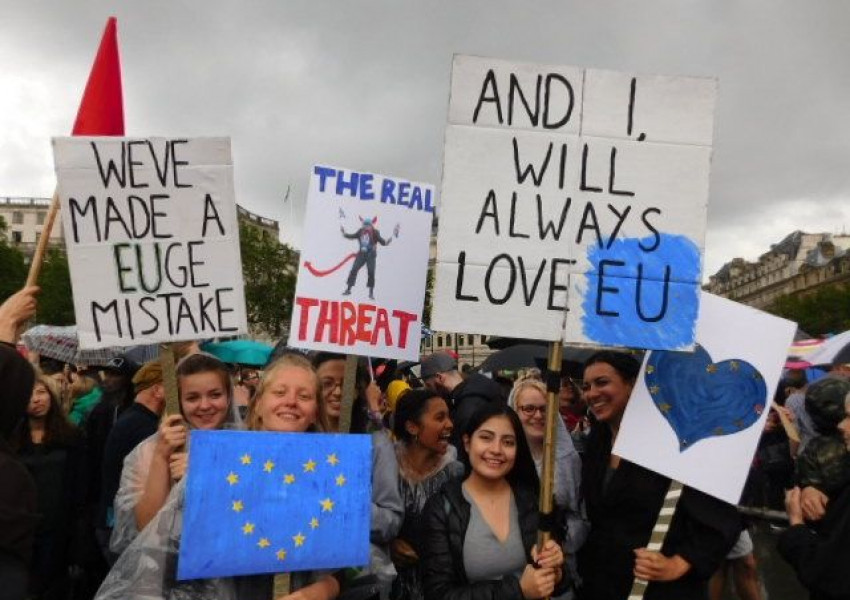 WEVE
MADE A
EUGE
MISTAKE
THE REAL
THREAT
AND I,
WILL
ALWAYS
LOVE EU